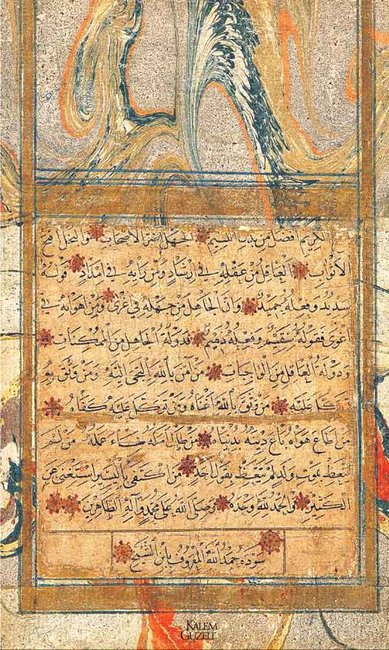 الكريم افضل من بذل اللئيم الجهل شر الاصحاب والبخل
الاتراب العاقل من عقله في ارشاد ومن رأيه في امداد فقوله
سديد وفعله حميد وان الجاهل من جهله في اغرى ومن اهوائه في
غوى فقوله سقيم وفعله ذميم فدولة الجاهل من الممكنات
ودولة العاقل من الواجبات من آمن بالله التجى اليه ومن وثق به
توكل عليه من وثق بالله اغناه ومن توكل عليه كفاه
من اطاع هواه باع دينه بدنياه عمله من لم
يتعظ بموت ولد لم يتعظ بقول احد من اكتفى باليسير استغنى عن
الكثير والحمد لله وحده وصلى الله على محمد وآله الطاهرين
سوده حمد الله المعروف بابن الشيخ
KALEM
GUZELI